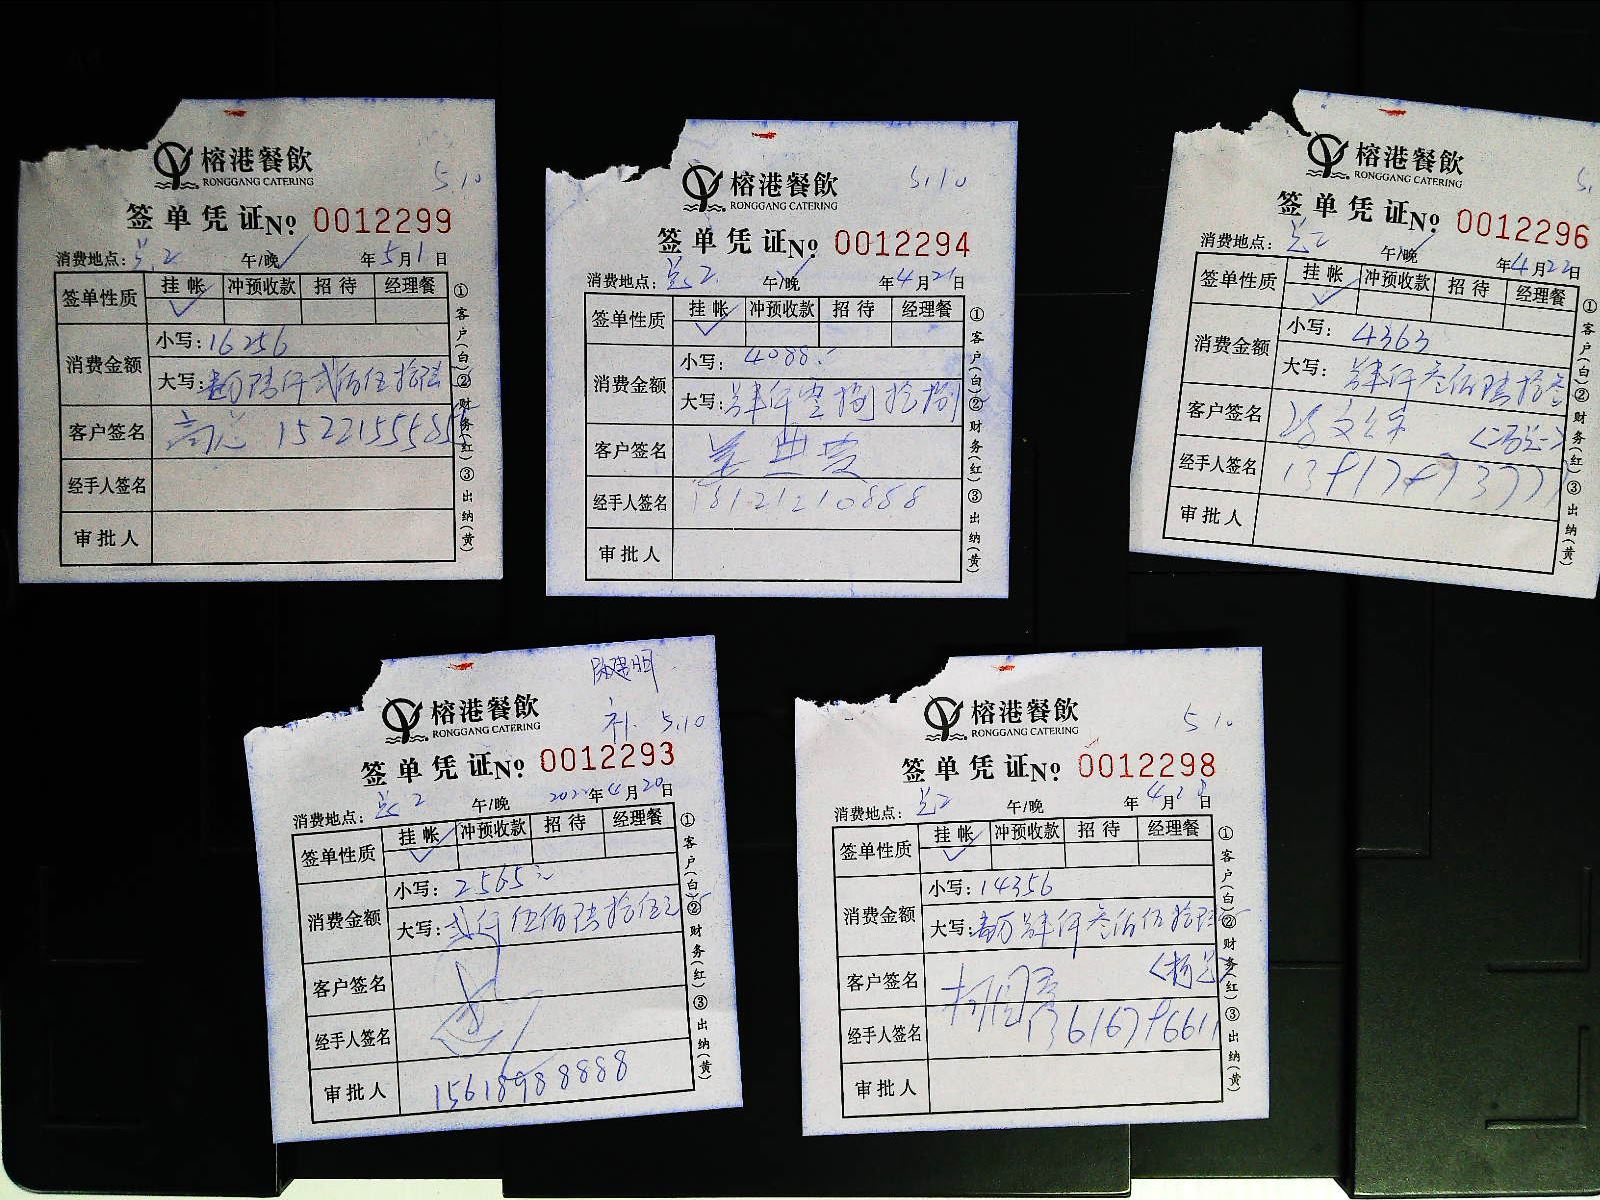 榕港餐飲
RONGGANG CATERING
5.10
签单凭证№ 0012299
消费地点: 吴2 午/晚 年5月1日
签单性质 挂帐 冲预收款 招待 经理餐
消费金额 小写: 16256
大写: 壹万陆仟贰佰伍拾陆
客户签名 高总 1522155585
经手人签名
审批人
①客户(白)②财务(红)③出纳(黄)
榕港餐飲
RONGGANG CATERING
5.10
签单凭证№ 0012294
消费地点: 吴2 午/晚 年4月21日
签单性质 挂帐 冲预收款 招待 经理餐
消费金额 小写: 4088
大写: 肆仟零捌拾捌
客户签名
经手人签名 18121210888
审批人
①客户(白)②财务(红)③出纳(黄)
榕港餐飲
RONGGANG CATERING
5.
签单凭证№ 0012296
消费地点: 吴2 午/晚 年4月22日
签单性质 挂帐 冲预收款 招待 经理餐
消费金额 小写: 4363
大写: 肆仟叁佰陆拾叁
客户签名
经手人签名
审批人
①客户(白)②财务(红)③出纳(黄)
榕港餐飲
RONGGANG CATERING
补 5.10
签单凭证№ 0012293
消费地点: 吴2 午/晚 2022年4月20日
签单性质 挂帐 冲预收款 招待 经理餐
消费金额 小写: 2565
大写: 贰仟伍佰陆拾伍元
客户签名
经手人签名
审批人 15618988888
①客户(白)②财务(红)③出纳(黄)
榕港餐飲
RONGGANG CATERING
5.10
签单凭证№ 0012298
消费地点: 吴2 午/晚 年4月 日
签单性质 挂帐 冲预收款 招待 经理餐
消费金额 小写: 14356
大写: 壹万肆仟叁佰伍拾陆
客户签名 <杨总>
经手人签名
审批人
①客户(白)②财务(红)③出纳(黄)